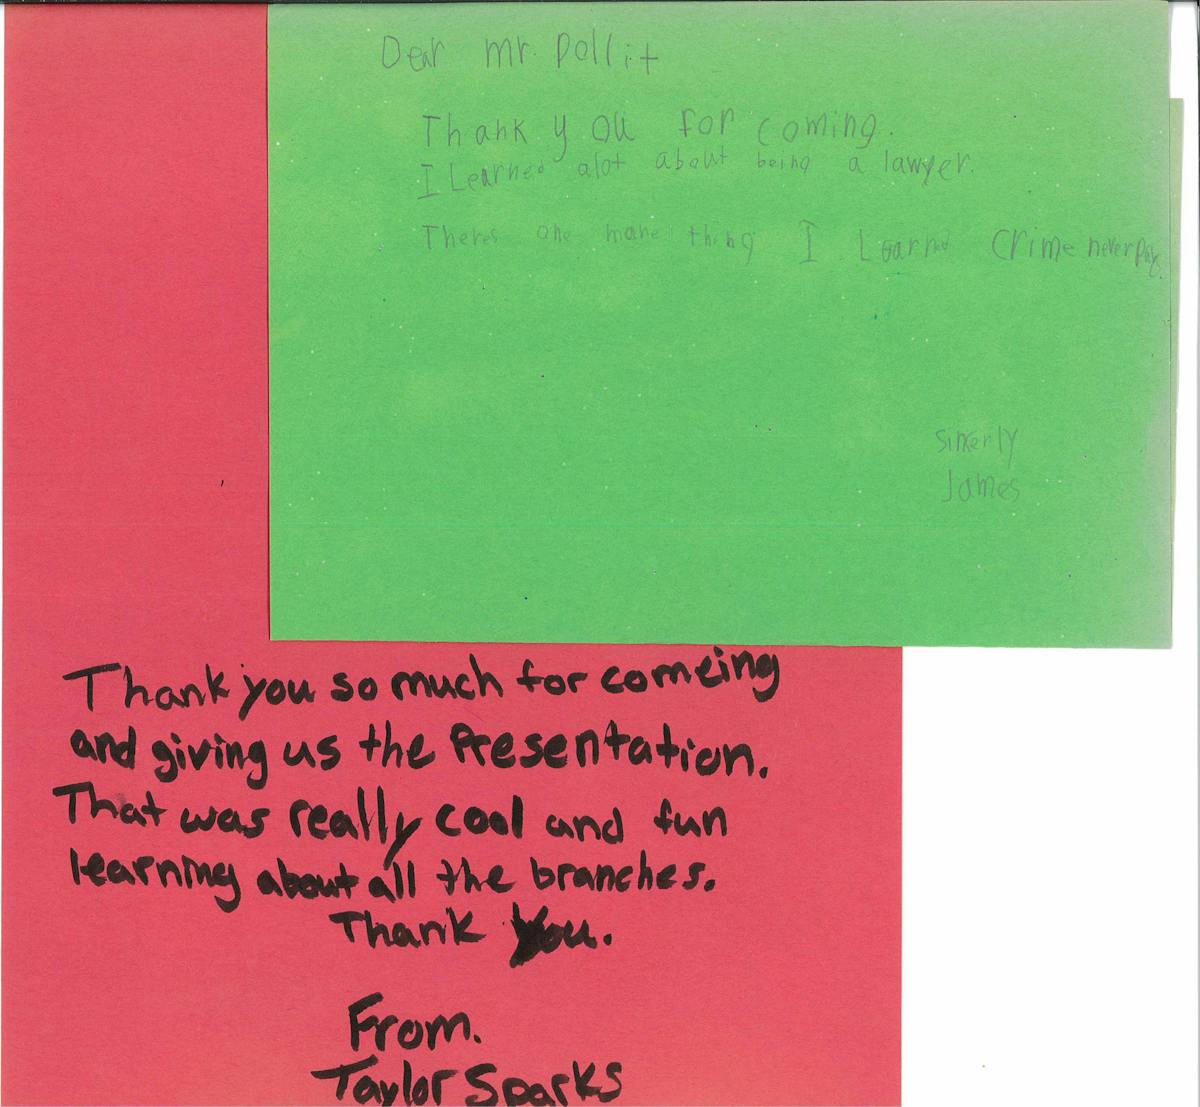 Dear mr. pollit
Thank you for coming.
I Learned alot about being a lawyer.
Theres one more thing I Learned Crime never pay.
Sinkerly
James
Thank you so much for comeing
and giving us the Presentation.
That was really cool and fun
learning about all the branches.
Thank You.
From.
Taylor Sparks